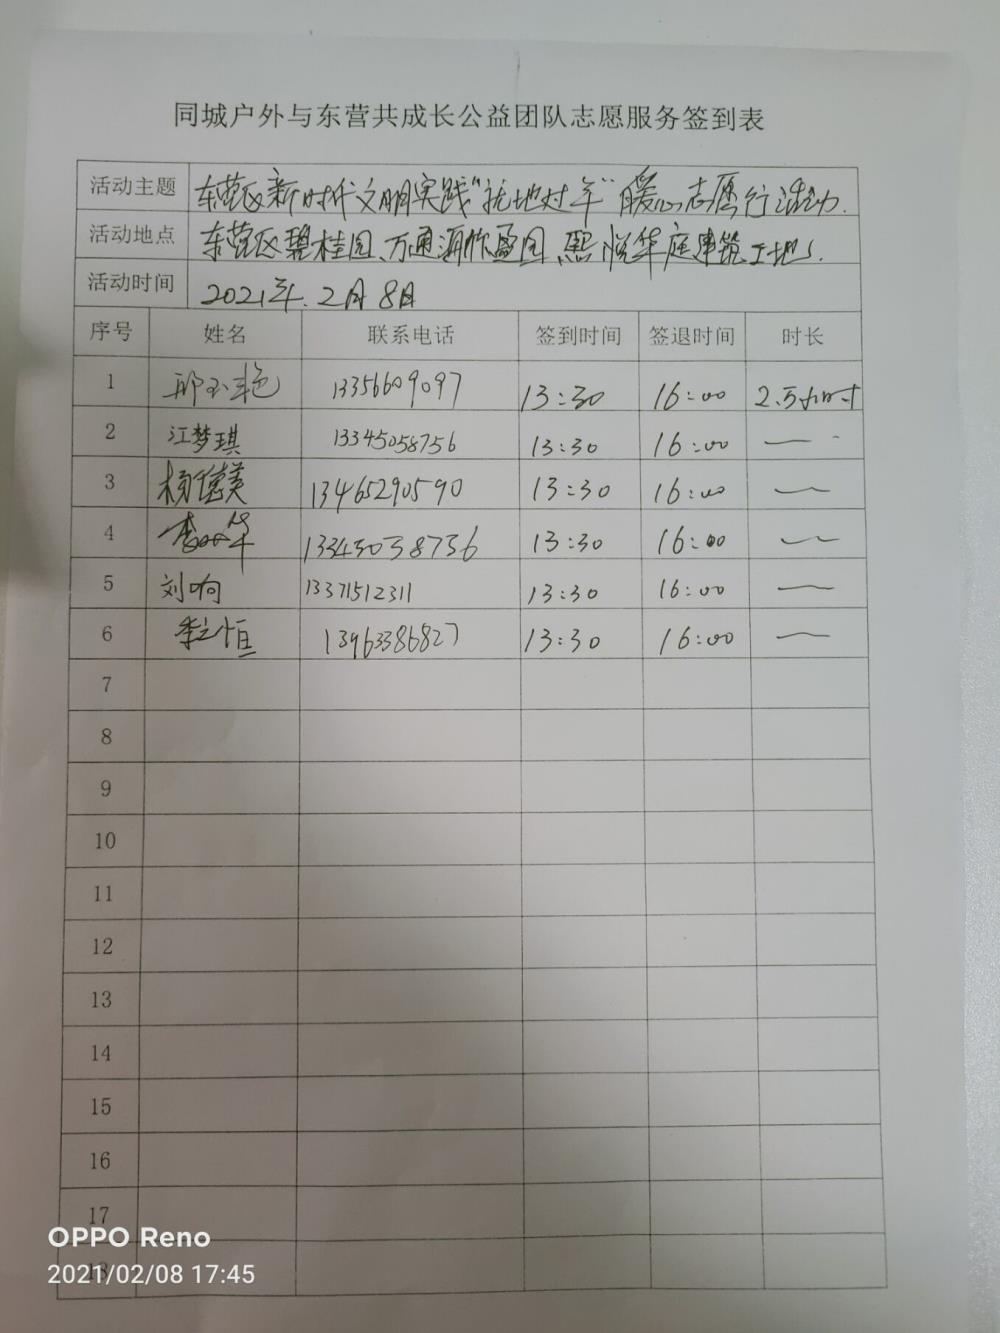 同城户外与东营共成长公益团队志愿服务签到表
活动主题 东营区新时代文明实践"就地过年"暖心志愿行活动.
活动地点 东营区碧桂园、万通 盈园、熙悦华庭建筑工地.
活动时间 2021年.2月8日
序号 姓名 联系电话 签到时间 签退时间 时长
1 邢玉艳 13356609097 13:30 16:00 2.5小时
2 江梦琪 13345058756 13:30 16:00 —
3 杨德美 13465290590 13:30 16:00 —
4 李 华 13345058756 13:30 16:00 —
5 刘响 13371512311 13:30 16:00 —
6 李立恒 13963386827 13:30 16:00 —
7
8
9
10
11
12
13
14
15
16
17
18
OPPO Reno
2021/02/08 17:45